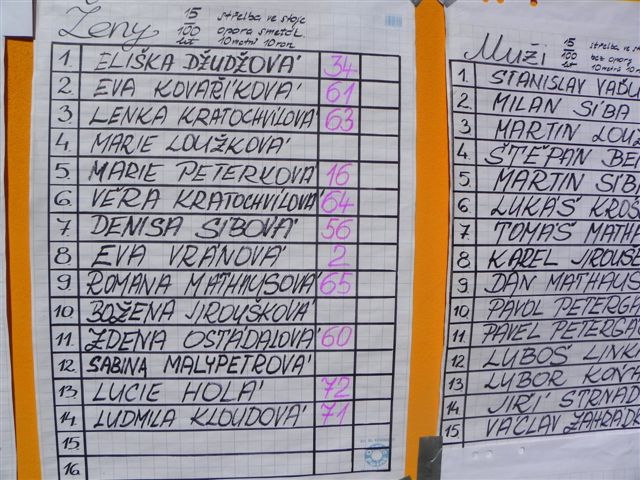 Ženy 15 střelba ve stoje
100 opora smetál
10 metrů 10 ran
1. ELIŠKA DŽUDŽOVÁ 34
2. EVA KOVAŘÍKOVÁ 61
3. LENKA KRATOCHVÍLOVÁ 63
4. MARIE LOUŽKOVÁ
5. MARIE PETERKOVÁ 16
6. VĚRA KRATOCHVÍLOVÁ 64
7. DENISA SIBOVÁ 56
8. EVA VRÁNOVÁ 2
9. ROMANA MATHAUSOVÁ 65
10. BOŽENA JIROUŠKOVÁ
11. ZDENA OSTÁDALOVÁ 60
12. SABINA MALYPETROVÁ
13. LUCIE HOLÁ 72
14. LUDMILA KLOUDOVÁ 71
15.
16.
Muži 15 střelba ve
100 bez opory
10 metrů 10
1. STANISLAV VABU
2. MILAN SIBA
3. MARTIN LOUŽ
4. ŠTĚPÁN BE
5. MARTIN SIB
6. LUKÁŠ KROS
7. TOMÁŠ MATHA
8. KAREL JIROUŠE
9. DAN MATHAUS
10. PAVOL PETERGA
11. PAVEL PETERGA
12. LUBOŠ LINK
13. LUBOR KOŇA
14. JIŘÍ STRNAD
15. VÁCLAV ZAHRADK